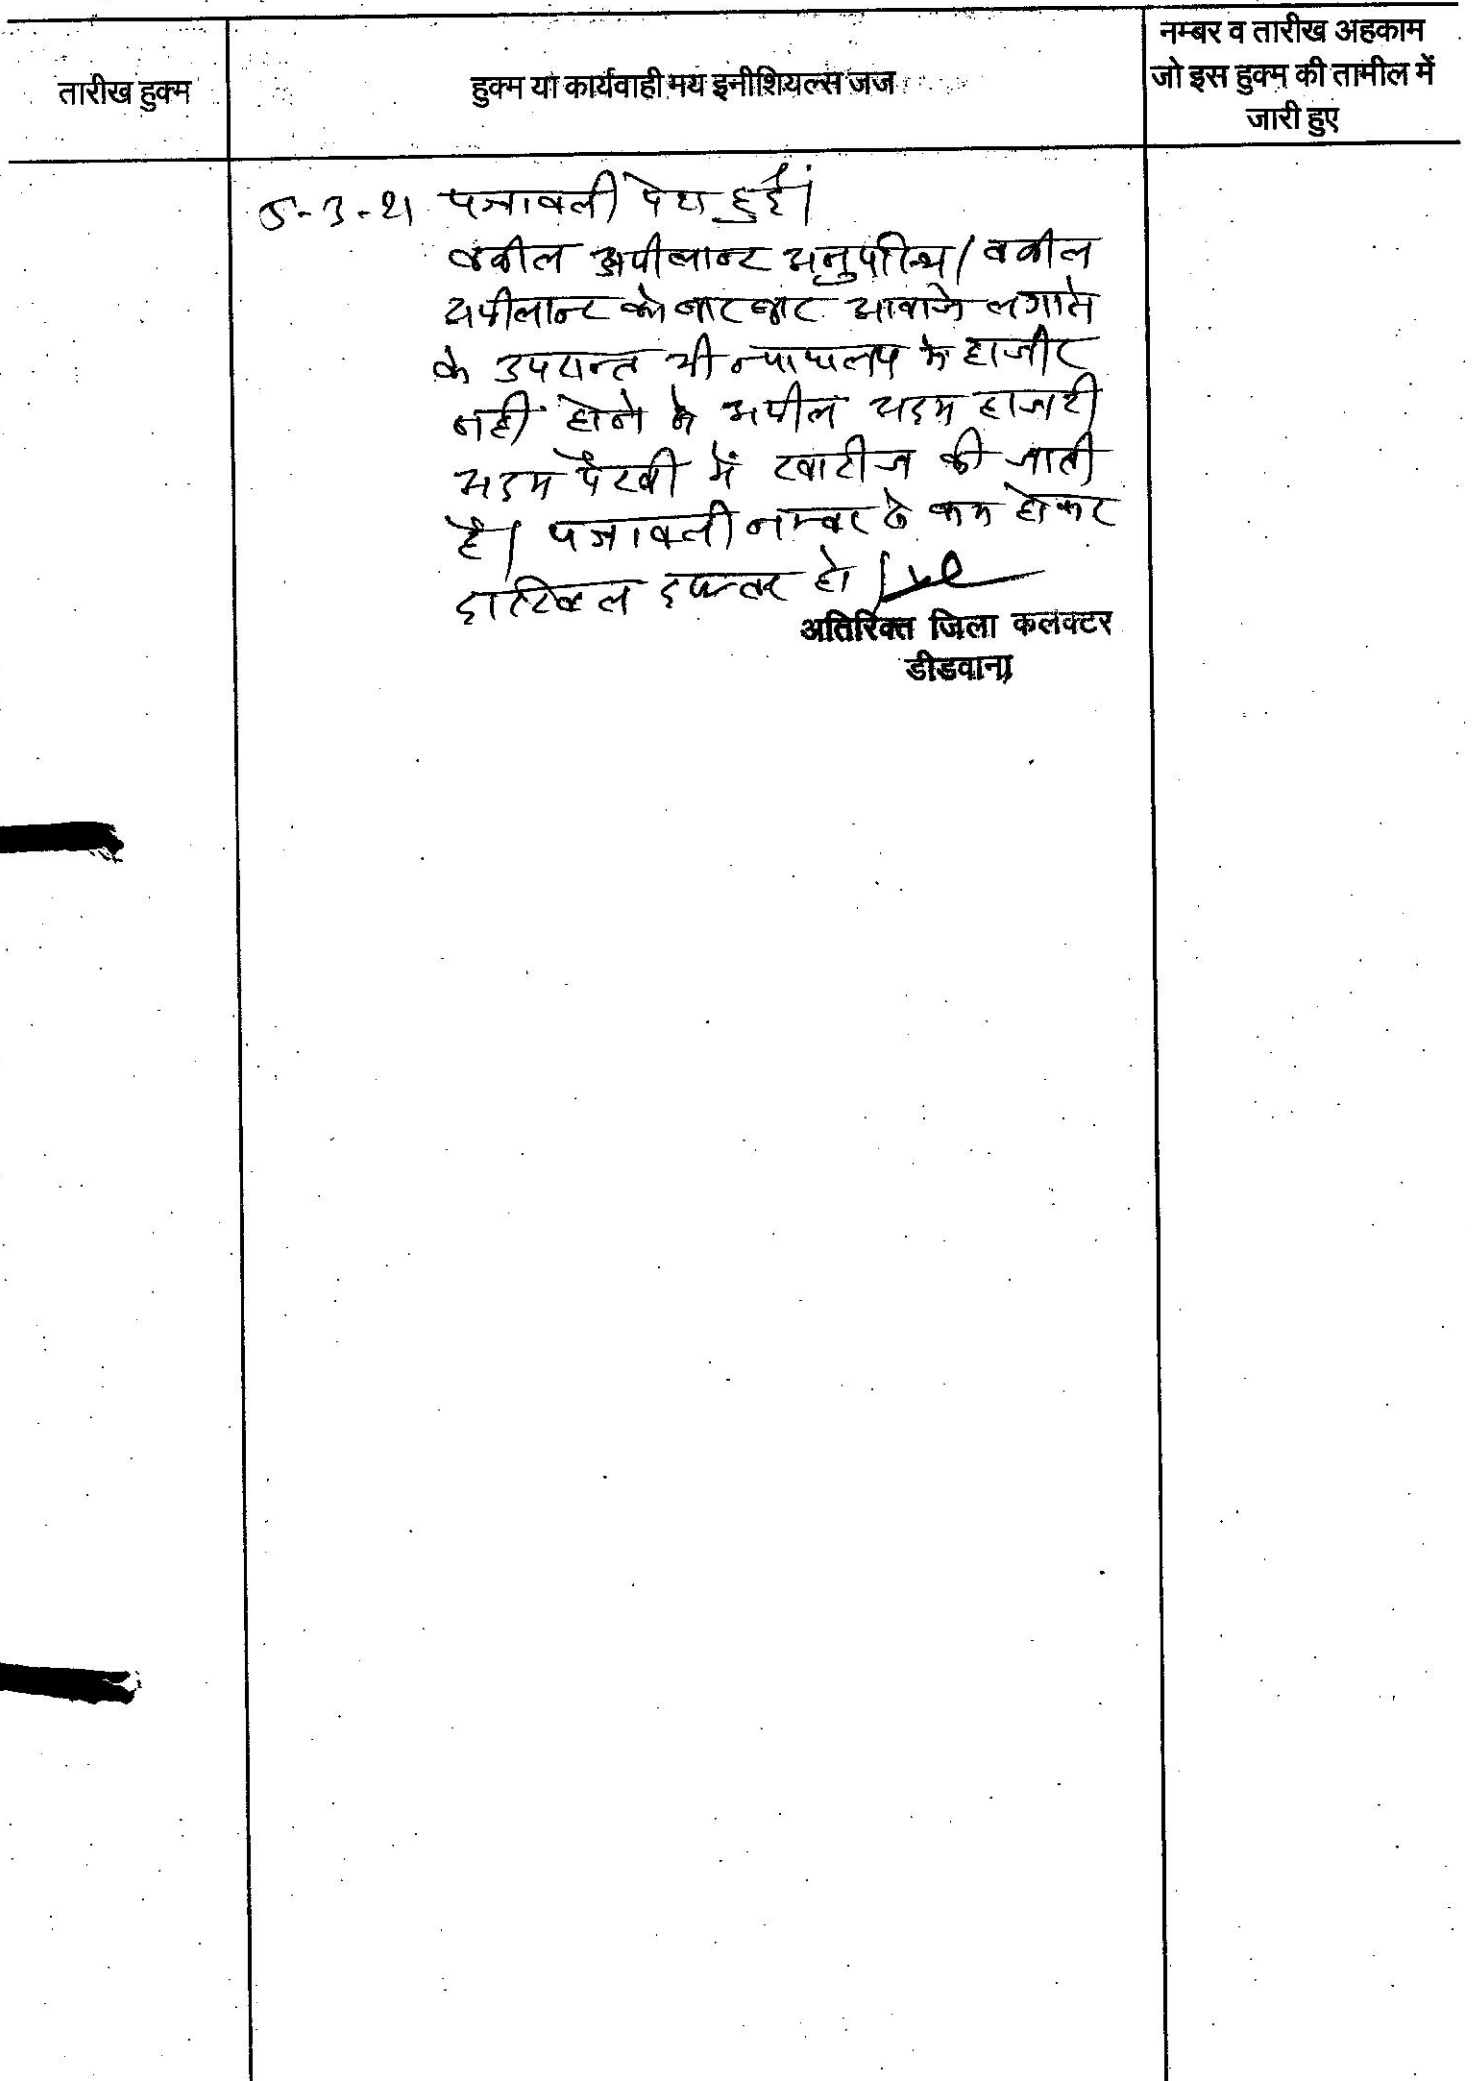 तारीख हुक्म
हुक्म या कार्यवाही मय इनीशियल्स जज
नम्बर व तारीख अहकाम
जो इस हुक्म की तामील में
जारी हुए
5-3-21 पत्रावली पेश हुई।
वकील अपीलान्ट अनुपस्थित। वकील
अपीलान्ट को बार बार आवाजे लगाने
के उपरान्त भी न्यायालय में हाजीर
नही होने से अपील अदम हाजरी
अदम पैरवी में खारीज की जाती
है। पत्रावली नम्बर से कम होकर
दाखिल दफ्तर हो।
अतिरिक्त जिला कलक्टर
डीडवाना